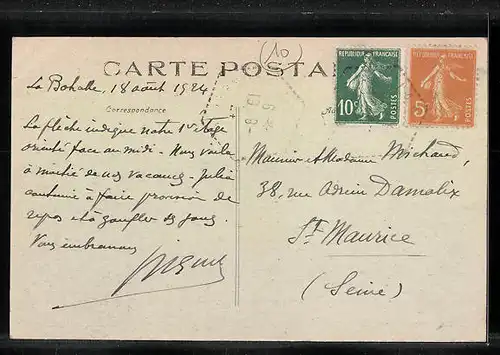 (10)
CARTE POSTA
REPUBLIQUE FRANÇAISE
10c
POSTES
REPUBLIQUE FRANÇAISE
5c
POSTES
La Bohalle, 18 août 1924
Correspondance
La flèche indique notre 1er étage
orienté face au midi - Nous voilà
à moitié de nos vacances - Julia
continue à faire provision de
repos et à gonfler ses joues.
Vous embrassons
Monsieur et Madame Michaud,
38, rue Adrien Damalix
St Maurice
(Seine)